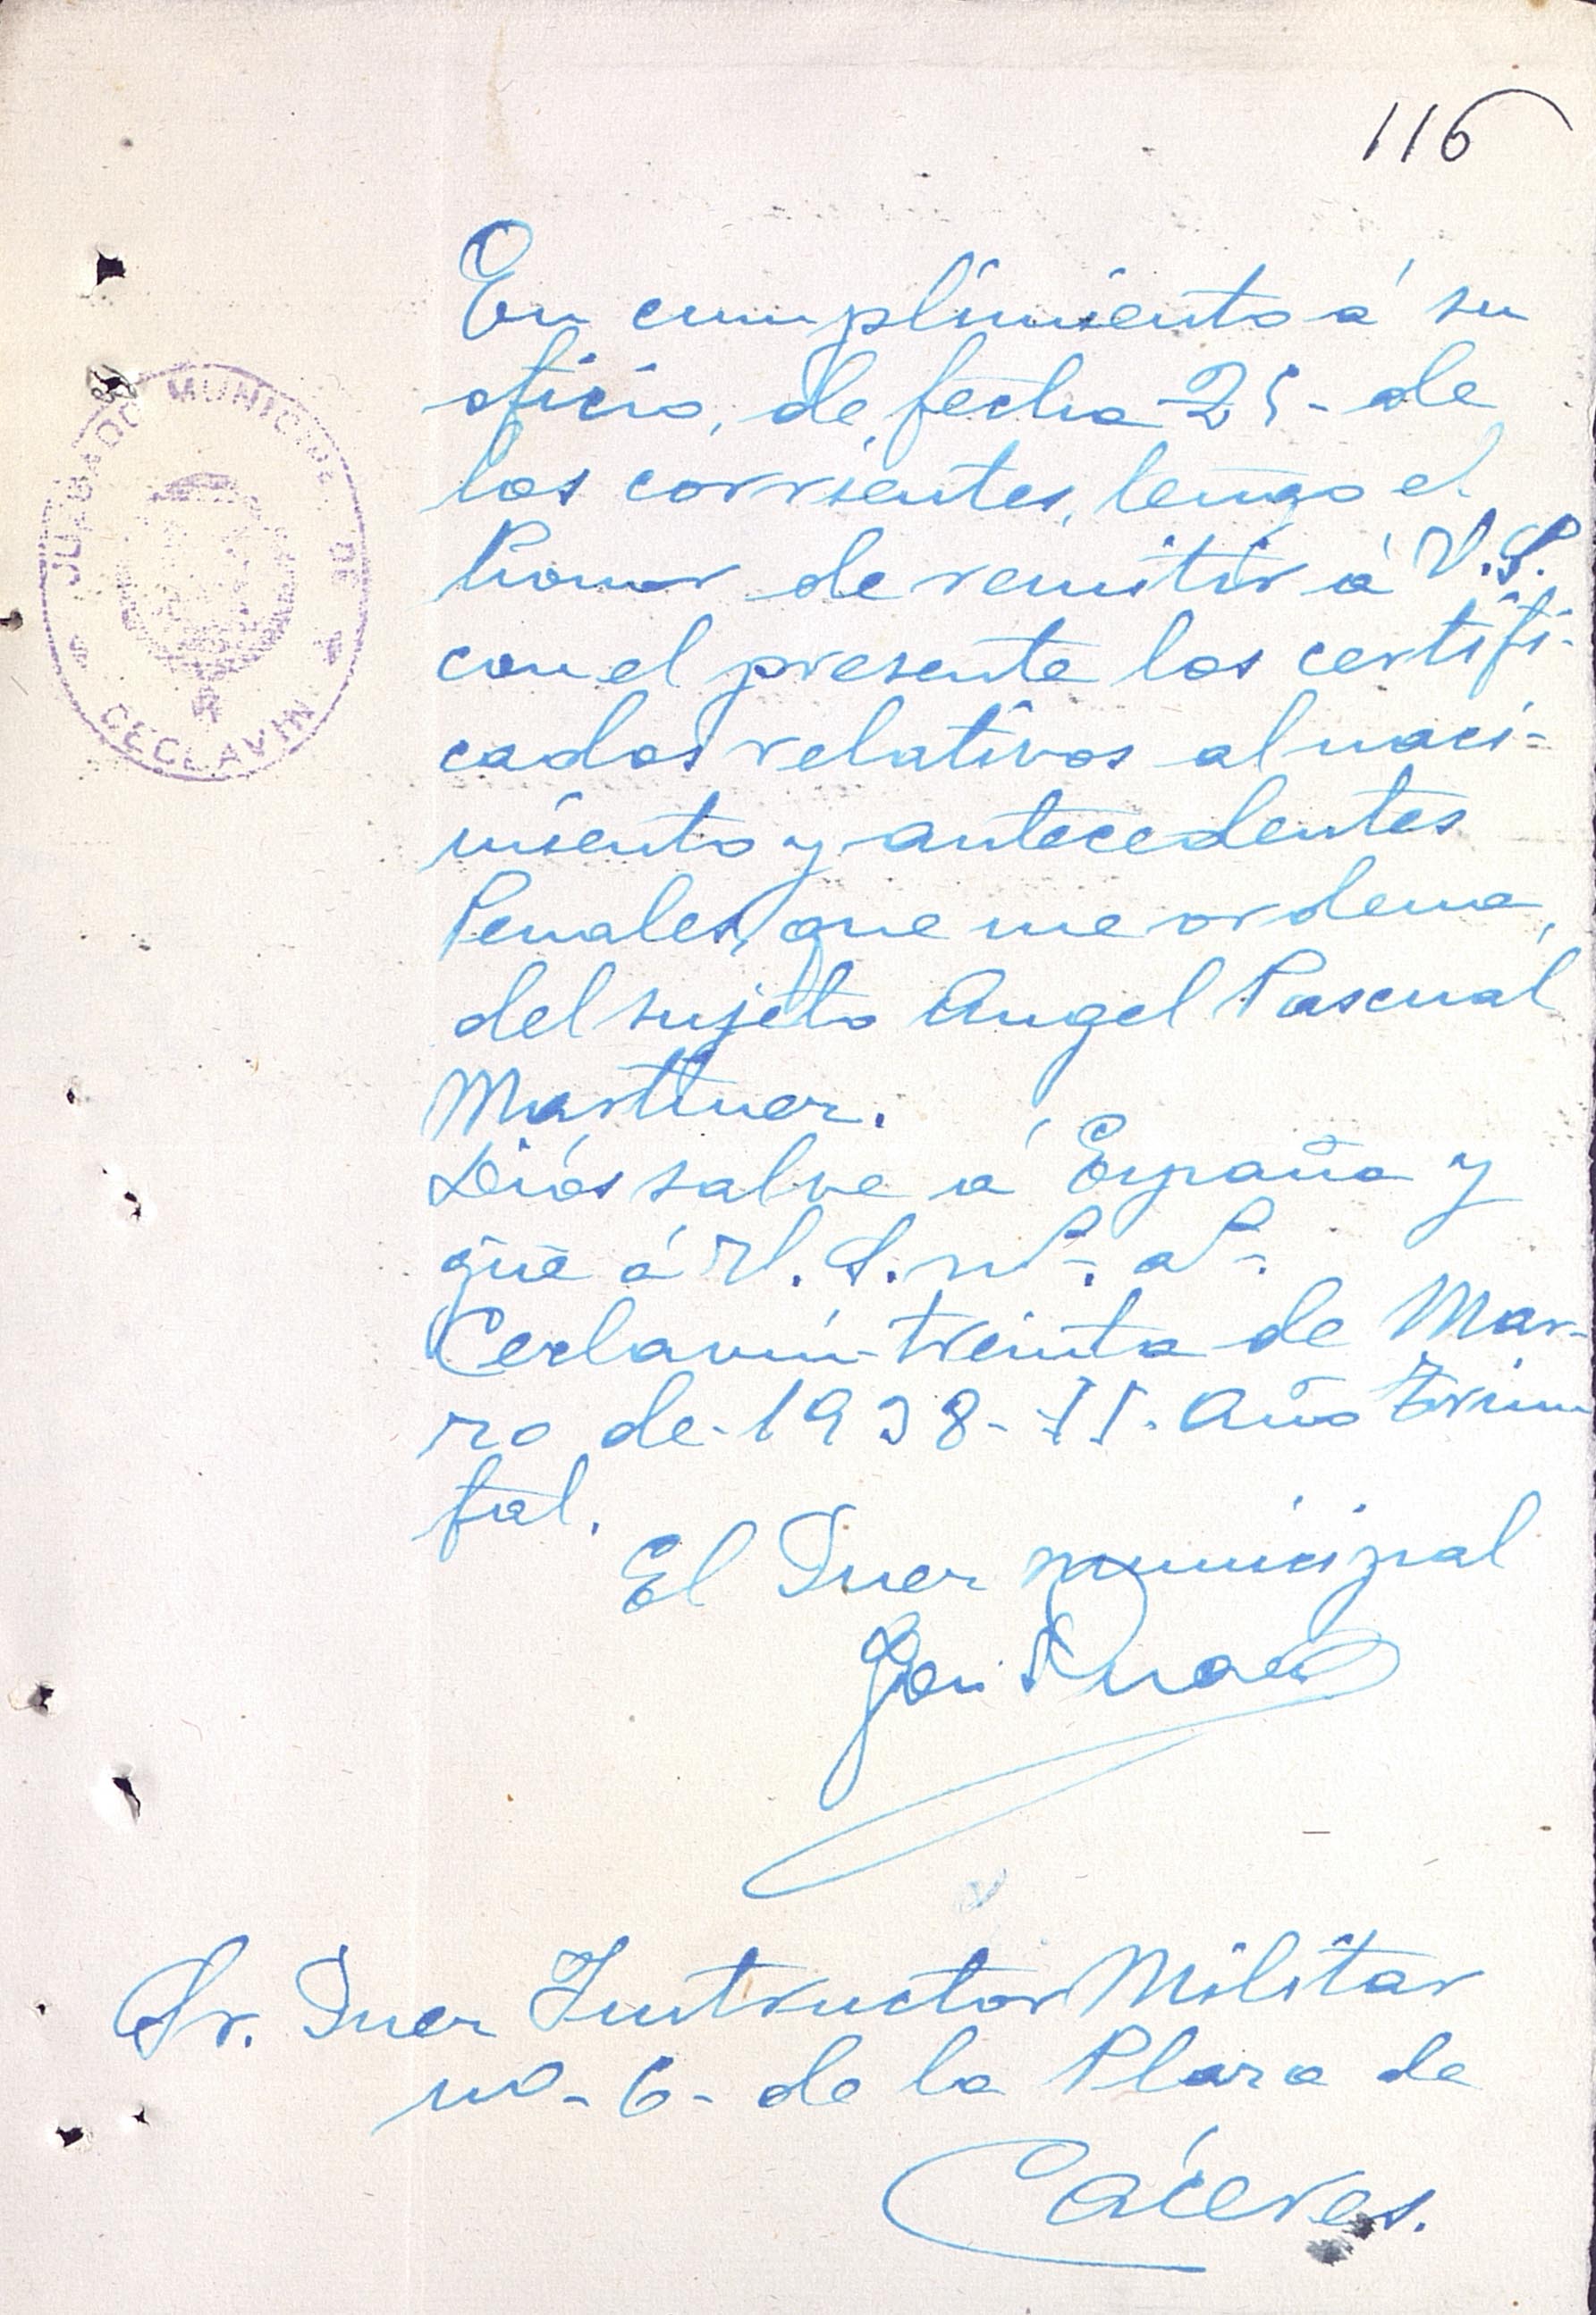 116
JUZGADO MUNICIPAL DE
CECLAVIN
En cumplimiento á su
oficio, de fecha 25 - de
los corrientes, tengo el
honor de remitir á V.S.
con el presente los certifi-
cados relativos al naci-
miento y antecedentes
Penales, que me ordena,
del sujeto Angel Pascual
Martinez.
Diós salve á España y
gue á V. S. ms. as.
Ceclavín treinta de Mar-
zo de 1938 - II. Año Triun
fal.
El Juez municipal
José
Sr. Juez Instructor Militar
nº - 6 - de la Plaza de
Cáceres.